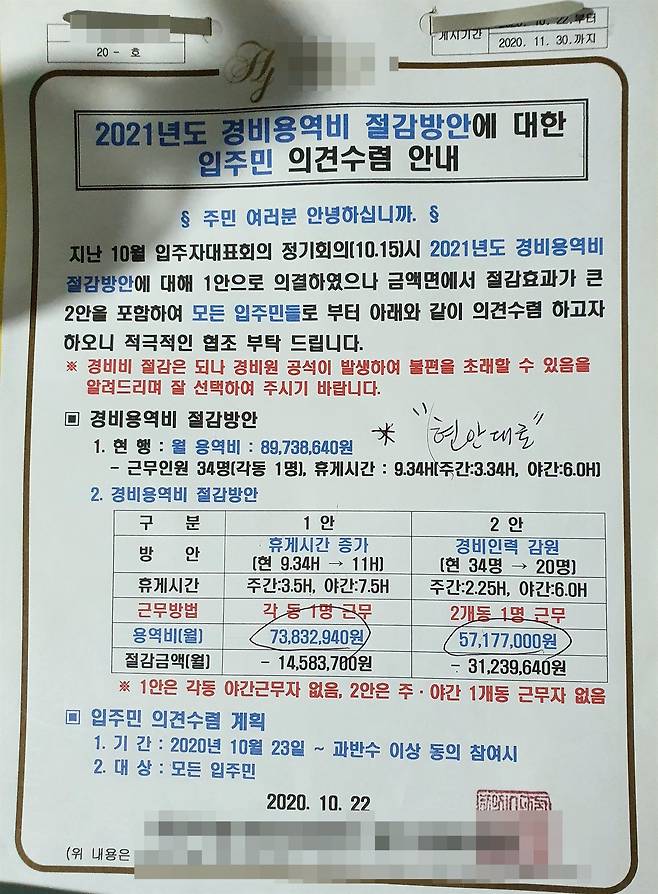 20 - 호
2020. 10. 22.부터
게시기간
2020. 11. 30.까지
2021년도 경비용역비 절감방안에 대한
입주민 의견수렴 안내
§ 주민 여러분 안녕하십니까. §
지난 10월 입주자대표회의 정기회의(10.15)시 2021년도 경비용역비
절감방안에 대해 1안으로 의결하였으나 금액면에서 절감효과가 큰
2안을 포함하여 모든 입주민들로 부터 아래와 같이 의견수렴 하고자
하오니 적극적인 협조 부탁 드립니다.
※ 경비비 절감은 되나 경비원 공석이 발생하여 불편을 초래할 수 있음을
알려드리며 잘 선택하여 주시기 바랍니다.
▣ 경비용역비 절감방안
* "현안대로"
1. 현 행 : 월 용역비 : 89,738,640원
- 근무인원 34명(각동 1명), 휴게시간 : 9.34H(주간:3.34H, 야간:6.0H)
2. 경비용역비 절감방안
구 분 1 안 2 안
방 안 휴게시간 증가 (현 9.34H → 11H) 경비인력 감원 (현 34명 → 20명)
휴게시간 주간:3.5H, 야간:7.5H 주간:2.25H, 야간:6.0H
근무방법 각 동 1명 근무 2개동 1명 근무
용역비(월) 73,832,940원 57,177,000원
절감금액(월) - 14,583,700원 - 31,239,640원
※ 1안은 각동 야간근무자 없음, 2안은 주·야간 1개동 근무자 없음
▣ 입주민 의견수렴 계획
1. 기 간 : 2020년 10월 23일 ~ 과반수 이상 동의 참여시
2. 대 상 : 모든 입주민
2020. 10. 22
(위 내용은